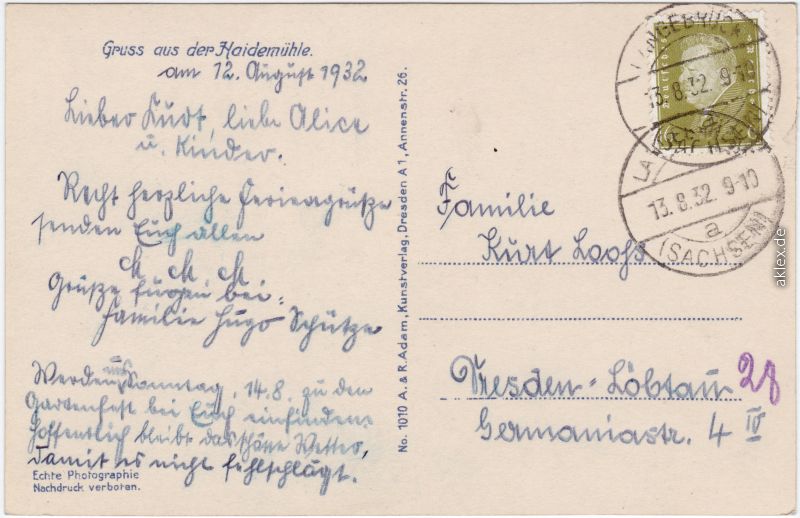 Gruss aus der Haidemühle.
am 12. August 1932
Lieber Kurt, liebe Alice
u. Kinder.
Recht herzliche Feriengrüße
senden Euch allen
M. M. M.
Grüße fügen bei:
Familie Hugo Schütze
Werden uns Sonntag, 14.8. zu den
Gartenfest bei Euch einfinden.
Hoffentlich bleibt das schöne Wetter,
damit es nicht fehlschlägt.
Echte Photographie
Nachdruck verboten.
No. 1010 A. & R. Adam, Kunstverlag, Dresden A 1, Annenstr. 26.
LANGEBRÜCK
13.8.32. 9-10
a
13.8.32 9-10
a
(SACHSEN)
Familie
Kurt Loohs
Dresden-Löbtau 28
Germaniastr. 4 IV
aklex.de